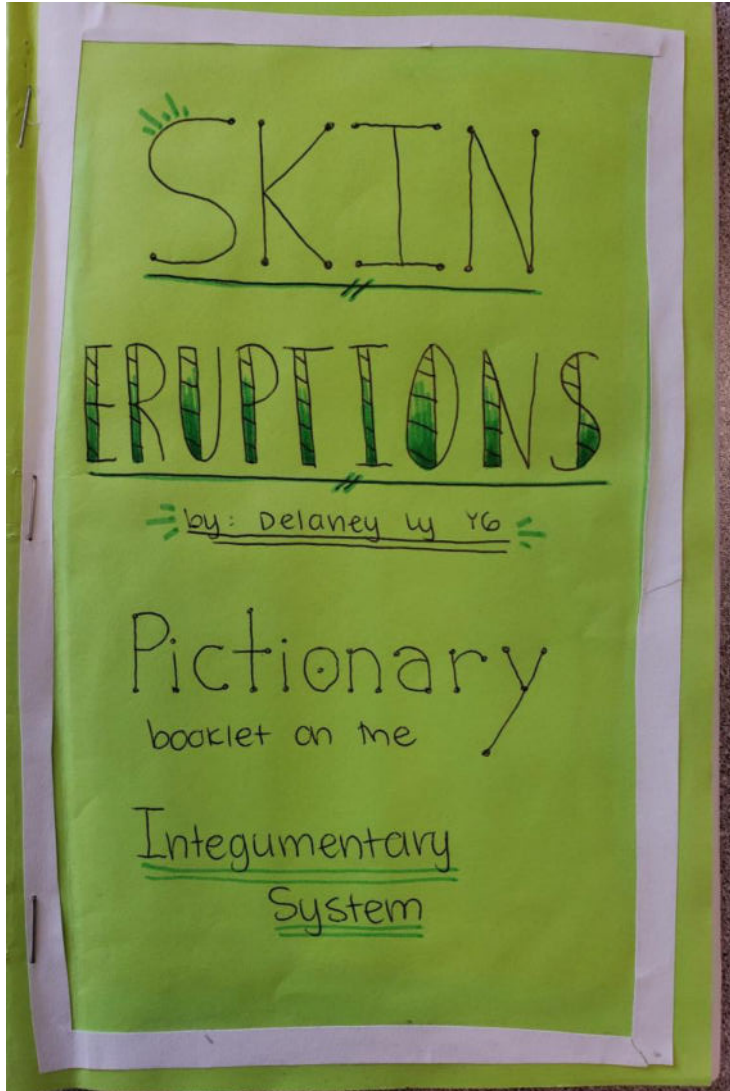 SKIN
ERUPTIONS
by: Delaney Ly Y6
Pictionary
booklet on the
Integumentary
System